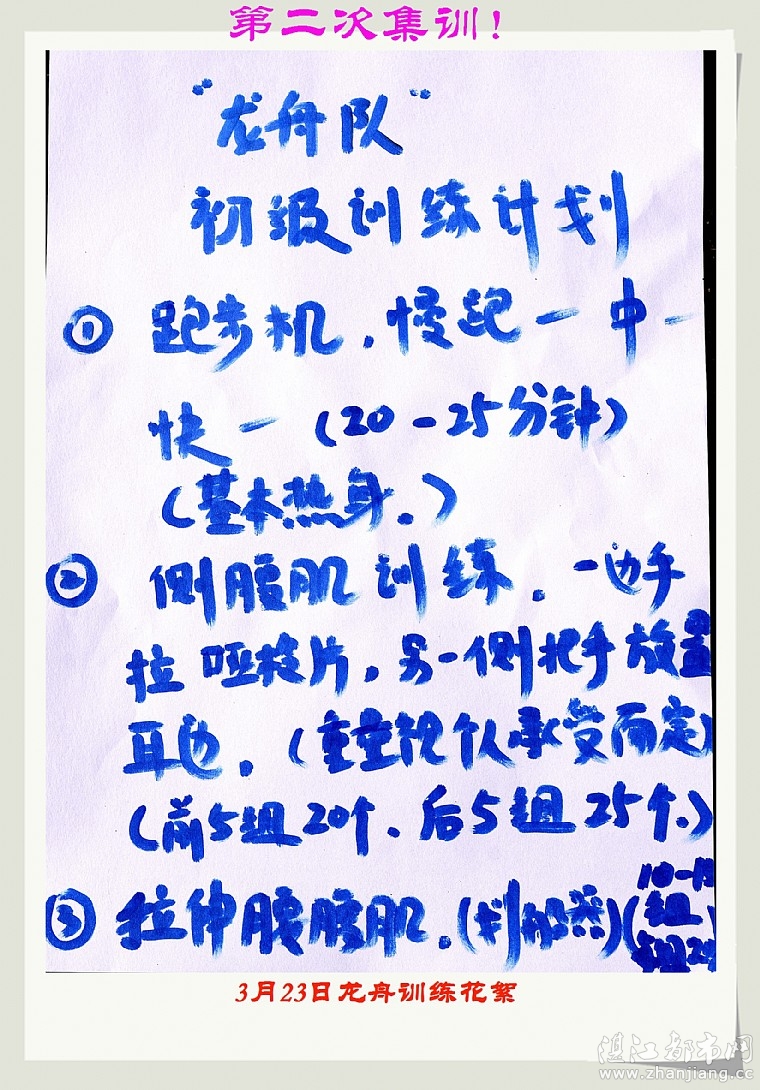 第二次集训！
"龙舟队"
初级训练计划
① 跑步机．慢跑－中－
快－（20－25分钟）
（基本热身．）
② 侧腹肌训练．一边手
拉哑铃片，另一侧把手放置
耳边．（重量视个人承受而定）
（前5组20个、后5组25个．）
③ 拉伸腰腹肌．(划船器)(10-15
组
3月23日龙舟训练花絮
湛江都市网
www.zhanjiang.cc